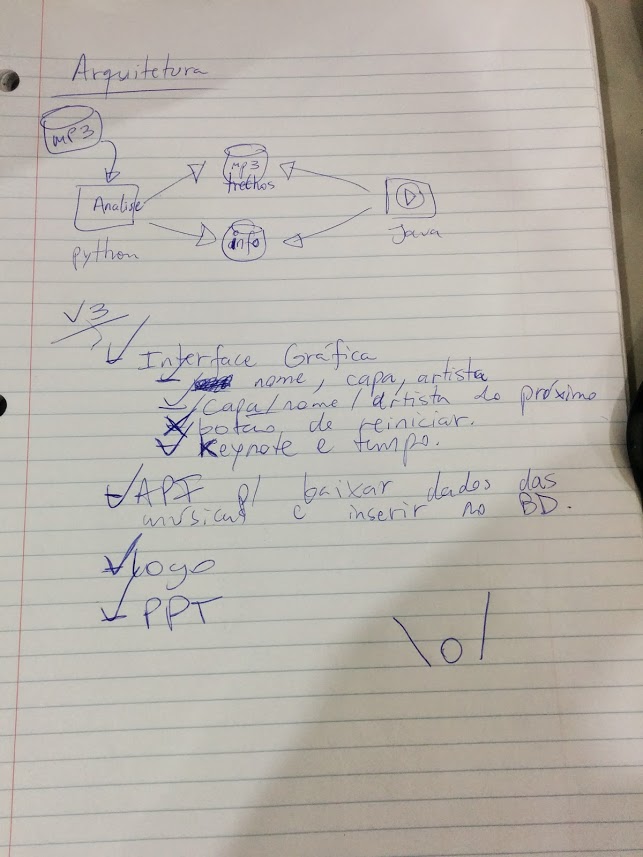 Arquitetura
mp3
mp3
trechos
Analise
info
python
Java
V3
Interface Gráfica
nome, capa, artista
capa/nome/artista do próximo
botão de reiniciar.
Keynote e tempo.
API p/ baixar dados das
musicas e inserir no BD.
Logo
PPT
\o/